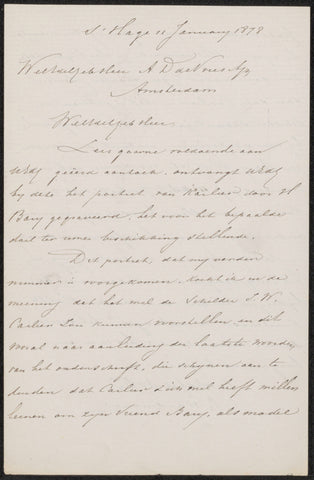 S'Hage 11 January 1878
WelEdelgeb Heer A D de Vries Az
Amsterdam
WelEdelgeb Heer,
Zeer gaarne voldoende aan
UEdg geëerd aanzoek, ontvangt UEdg
by deze het portret van Carlier door H
Bary gegraveerd, het voor het bepaalde
doel ter uwer beschikking stellende.
Dit portret, dat my verder
nimmer is voorgekomen, kocht ik in de
meening dat het wel de Schilder J. W.
Carlier zou kunnen voorstellen, en dit
vooral naar aanleiding der laatste woorden
van het onderschrift, die schynen aan te
duiden dat Carlier zich wel heeft willen
leenen om zyn vriend Bary, als model